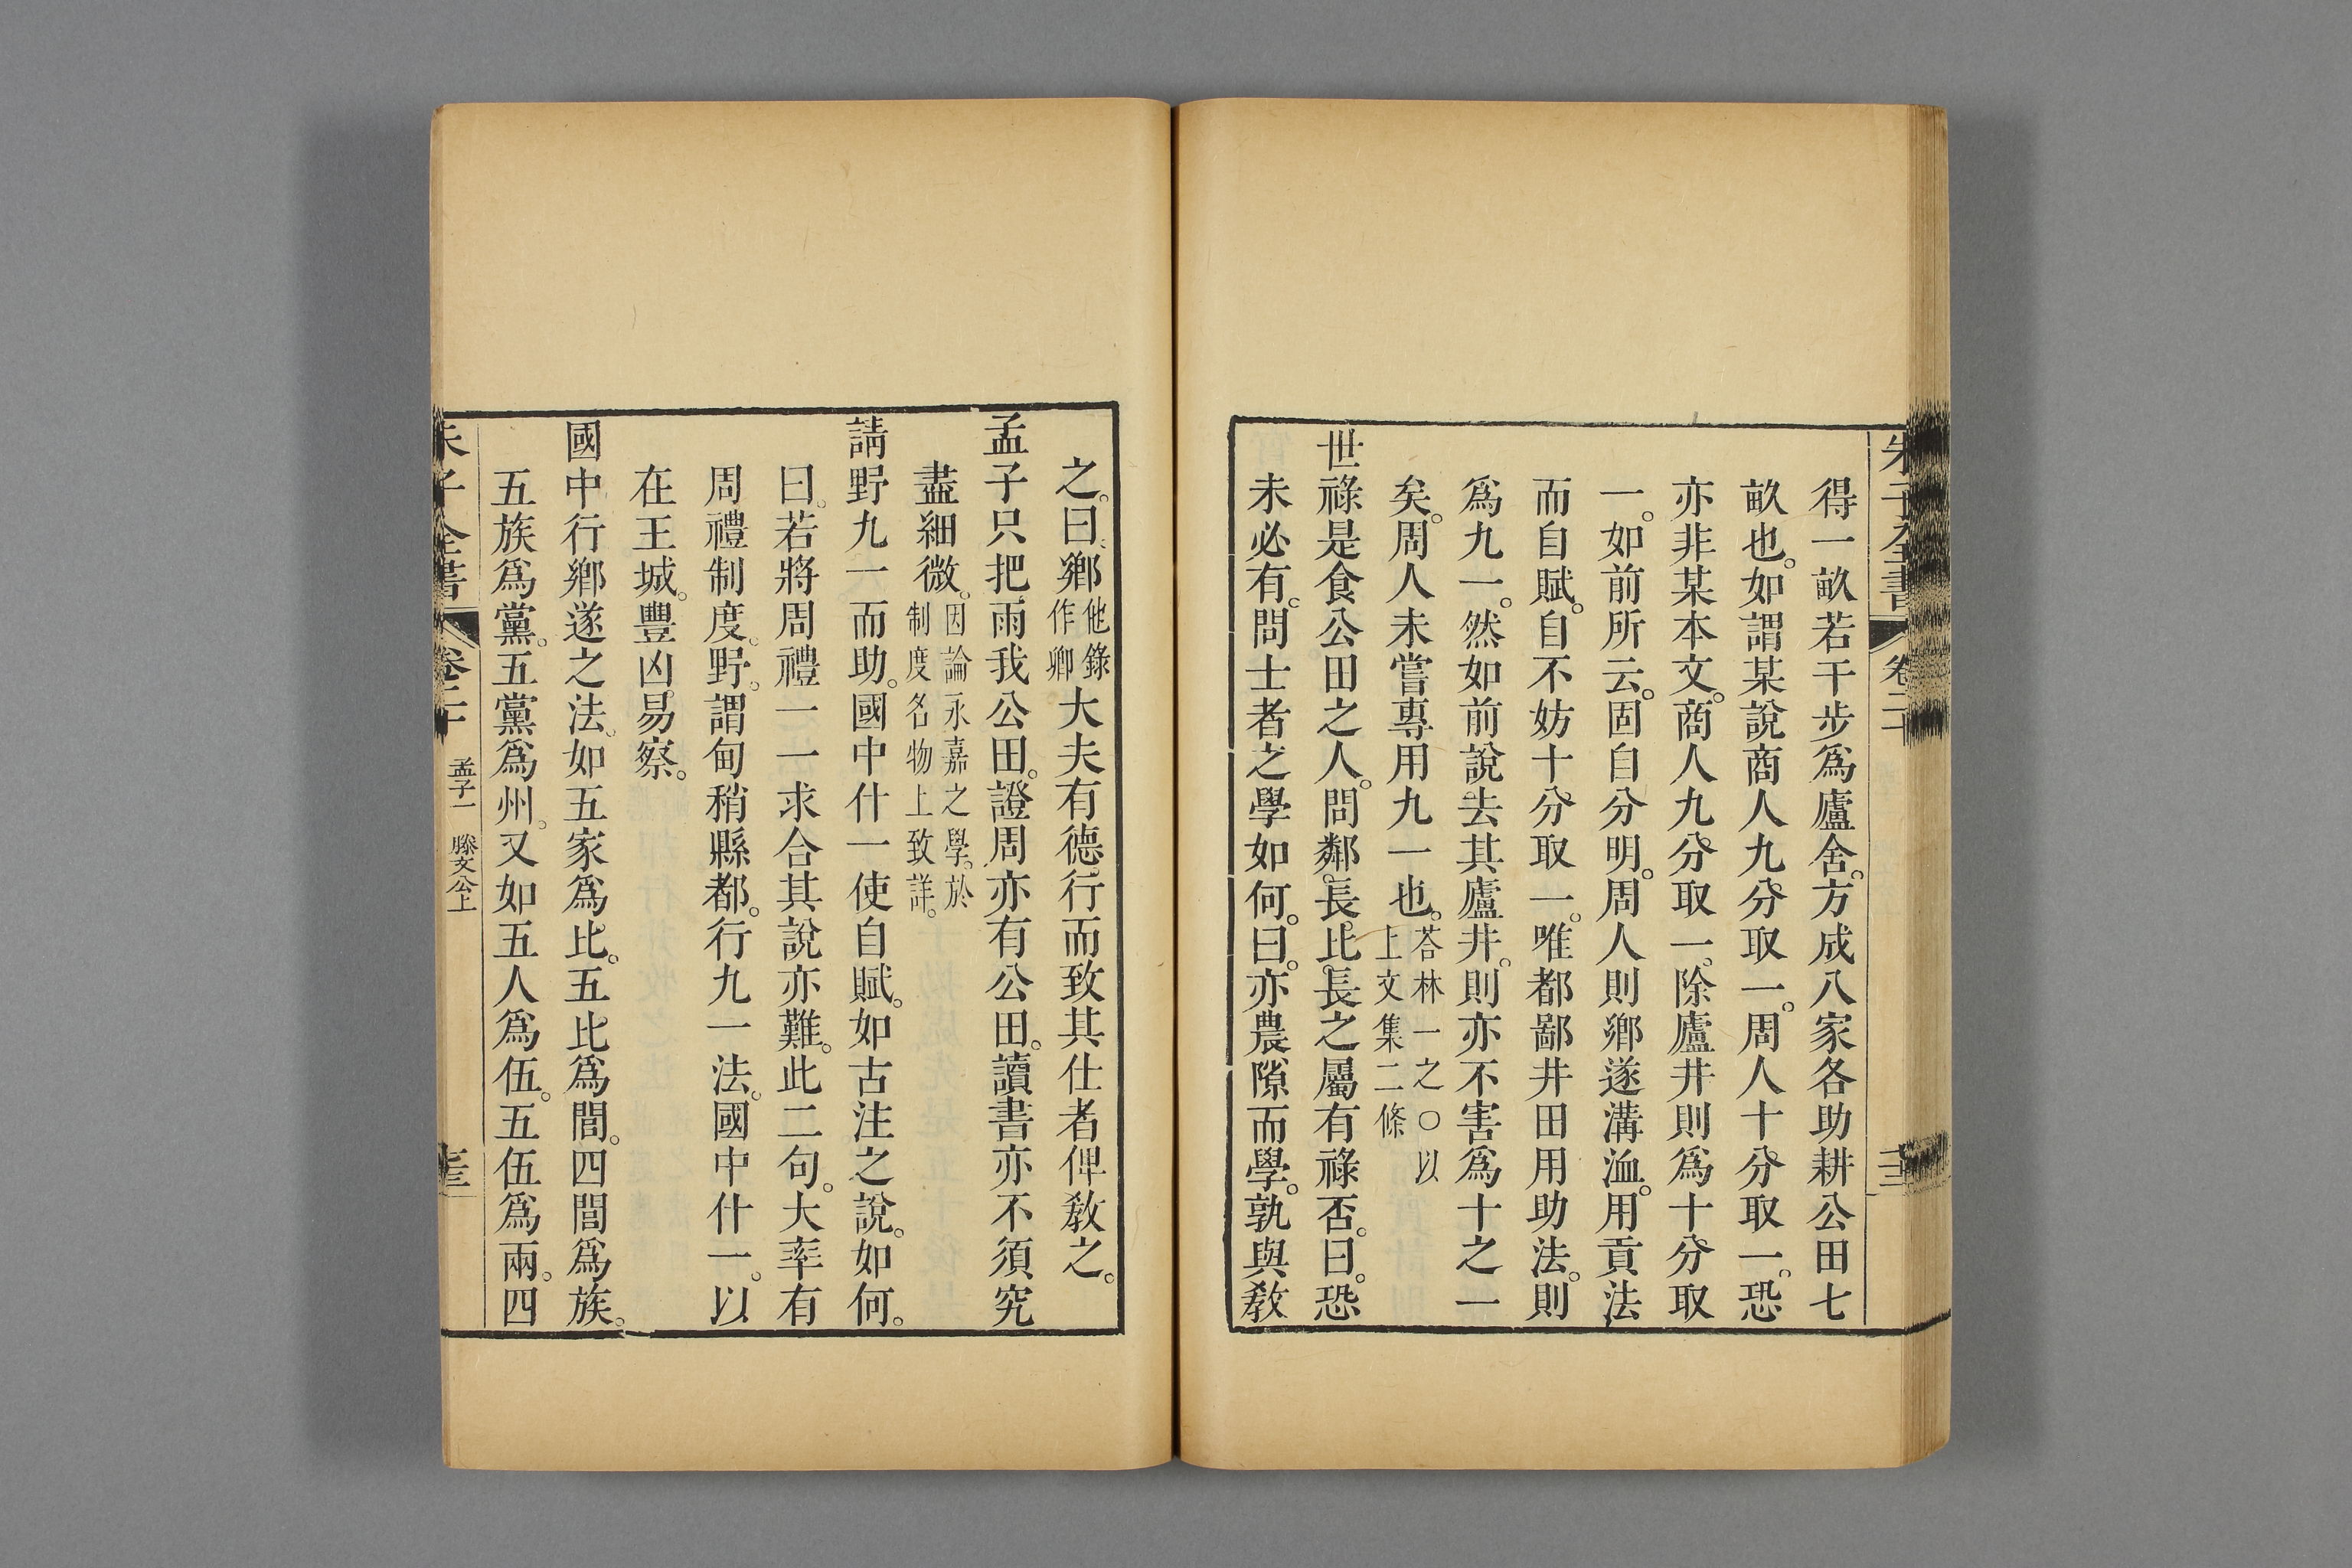 朱子全書 卷二十
得一畝若干步爲廬舍。方成八家各助耕公田七
畝也。如謂某說商人九分取一。周人十分取一。恐
亦非某本文。商人九分取一。除廬井則爲十分取
一。如前所云。固自分明。周人則鄉遂溝洫。用貢法
而自賦。自不妨十分取一。唯都鄙井田用助法。則
爲九一。然如前說去其廬井。則亦不害爲十之一
矣。周人未嘗專用九一也。荅林一之〇以上文集二條
世祿是食公田之人。問鄰長。比長之屬有祿否。曰。恐
未必有。問士者之學如何。曰。亦農隙而學。孰與敎
之。曰。鄉他錄作卿大夫有德行而致其仕者俾敎之。
孟子只把雨我公田。證周亦有公田。讀書亦不須究
盡細微。因論永嘉之學。於制度名物上致詳。
請野九一而助。國中什一使自賦。如古注之說。如何。
曰。若將周禮一一求合其說亦難。此二句。大率有
周禮制度。野。謂甸稍縣都。行九一法。國中什一。以
在王城。豐凶易察。
國中行鄉遂之法。如五家爲比。五比爲閭。四閭爲族。
五族爲黨。五黨爲州。又如五人爲伍。五伍爲兩。四
朱子全書 卷二十 孟子一 滕文公上